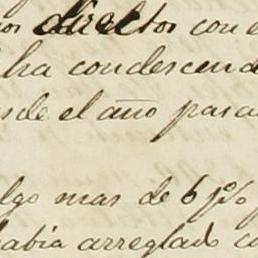 directos con
ha condescend
sde el año pasa
lgo mas de 6 p%
abia arreglado co